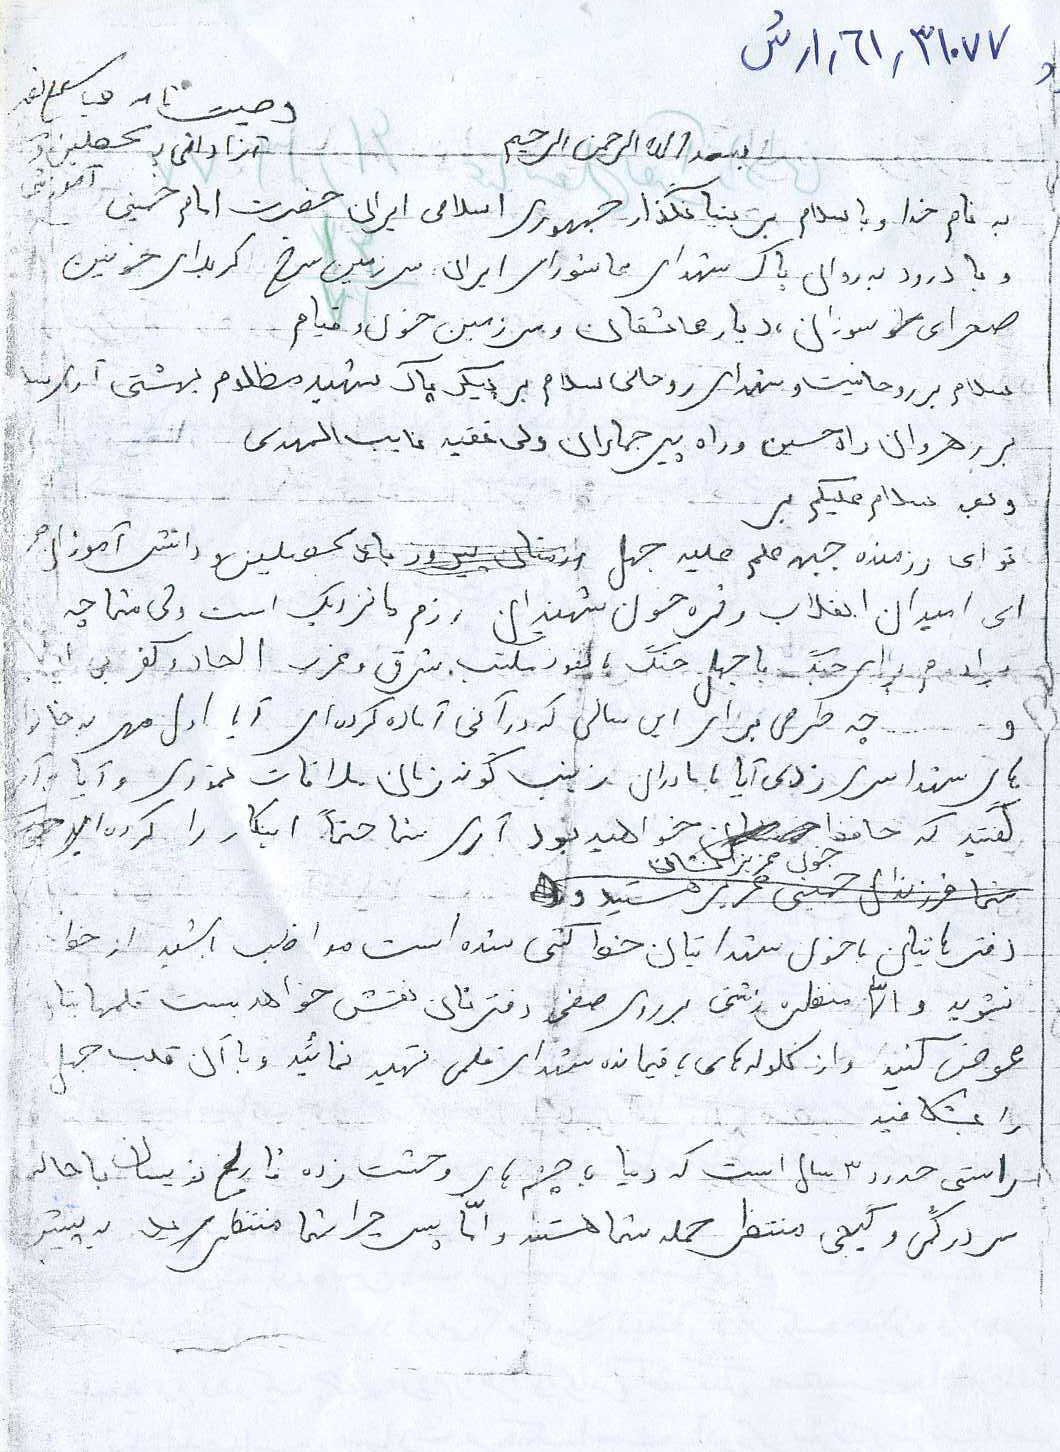 ۳۱۰۷۷ / ۶۱ / ۱ / ش
وصیت نامه
آزادانی به محصلین و
آموزش
بسم الله الرحمن الرحیم
به نام خدا و با سلام بر بنیانگذار جمهوری اسلامی ایران حضرت امام خمینی
و با درود به روان پاک شهدای عاشورای ایران سرزمین سرخ کربلای خونین
صحرای سوزان ، دیار عاشقان و سرزمین خون و قیام
سلام بر روحانیت و شهدای روحانی سلام بر پیکر پاک شهید مظلوم بهشتی آری سلام
بر رهروان راه حسین و راه پیر جماران ولی فقیه نایب المهدی
و سلام علیکم بر
تو ای رزمنده جبهه علم علیه جهل محصلین و دانش آموزان
ای امیدان انقلاب و ثمره خون شهیدان رزم ما نزدیک است ولی شما چه
برای جنگ با جهل جنگ با نفوذ مکتب شرق و غرب الحاد و کفر بی
و ... چه طرحی برای این سالی که در آنی آماده کرده‌ای آیا اول مهر به خانه
های شهدا سری زدی آیا با مادران زینب گونه زنان ملاقات نمودی و آیا به آن
گفتید که حافظ خون عزیزانشان خواهید بود آری شما حتماً اینکار را کرده‌اید
شما فرزندان خمینی عزیز هستید و
دفترهایتان با خون شهدایتان خط کشی شده است مواظب باشید از خط
نشوید و الّا منظره زشتی بر روی صفحه دفترتان نقش خواهد بست قلمهایتان
عوض کنید و از گلوله‌های باقیمانده شهدا قلمی تهیه نمائید و با آن قلب جهل
را بشکافید
راستی حدود ۳ سال است که دنیا با چشم های وحشت زده تاریخ نویسان با حالت
سردرگمی و گیجی منتظر حمله شما هستند و امّا پس چرا شما منتظرید به پیش